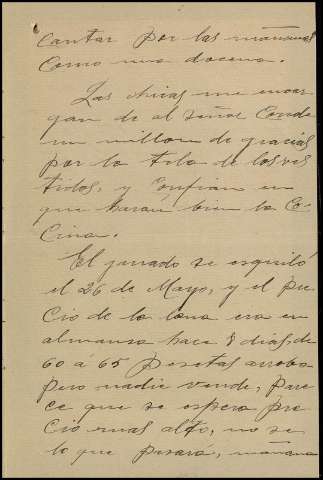 cantar por las mañanas
como una docena.
Las chicas me encar
gan de al señor Conde
un millon de gracias
por la tela de los ves
tidos, y confian en
que harán bien la Co-
cina.
El ganado se esquiló
el 26 de Mayo, y el pre
cio de la lana era en
almansa hace 8 dias, de
60 á 65 pesetas arroba
pero nadie vende, pare
ce que se espera pre
cio mas alto, no se
lo que pasará, mañana